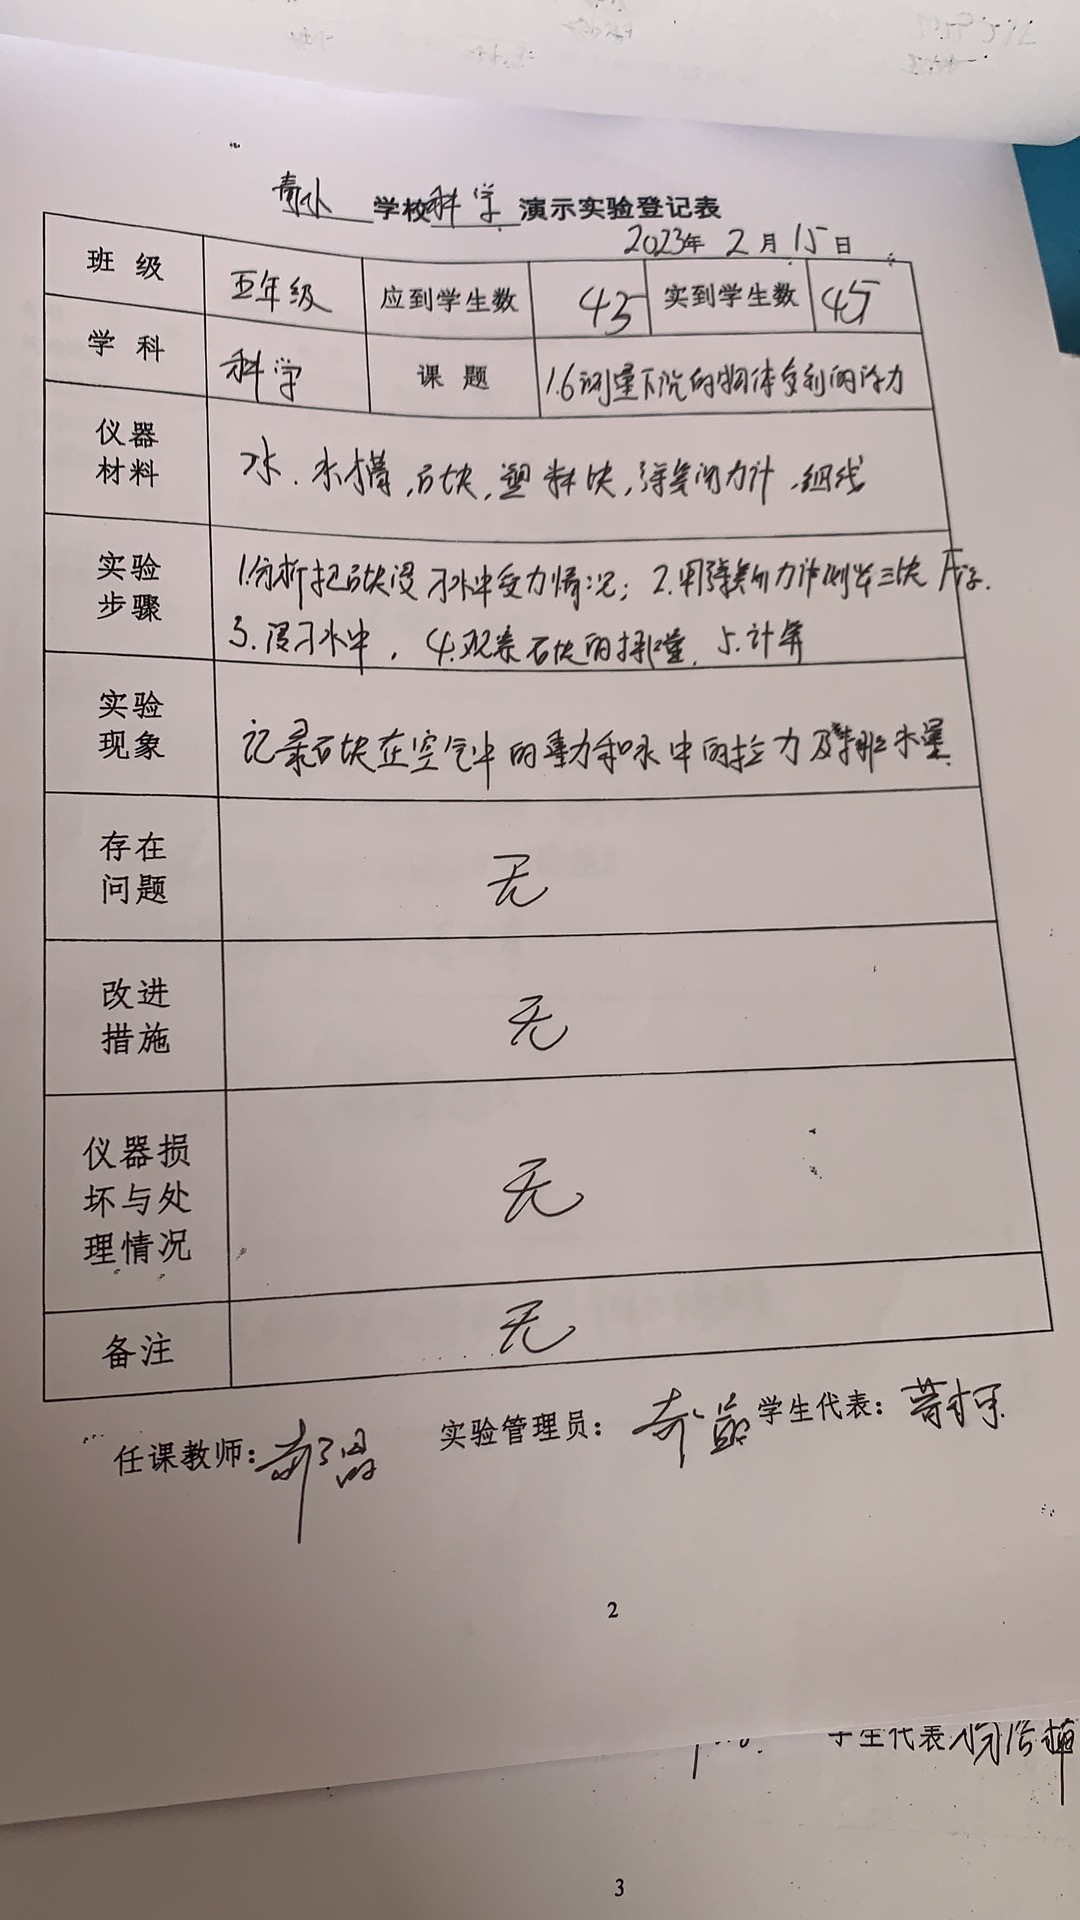 学校科学演示实验登记表
2023年 2月 15日
班级 五年级 应到学生数 45 实到学生数 45
学科 科学 课题 1.6测量下沉的物体受到的浮力
仪器材料 水、水槽,石块,塑料块,弹簧测力计、细线
实验步骤 1.分析把石块浸 水中受力情况; 2.用弹簧测力计测出三块
3.浸 水中, 4.观察石块的排 量. 5.计算
实验现象 记录石块在空气中的重力和水中的拉力及排水量.
存在问题 无
改进措施 无
仪器损坏与处理情况 无
备注 无
任课教师: 实验管理员: 学生代表:
2
学生代表
3